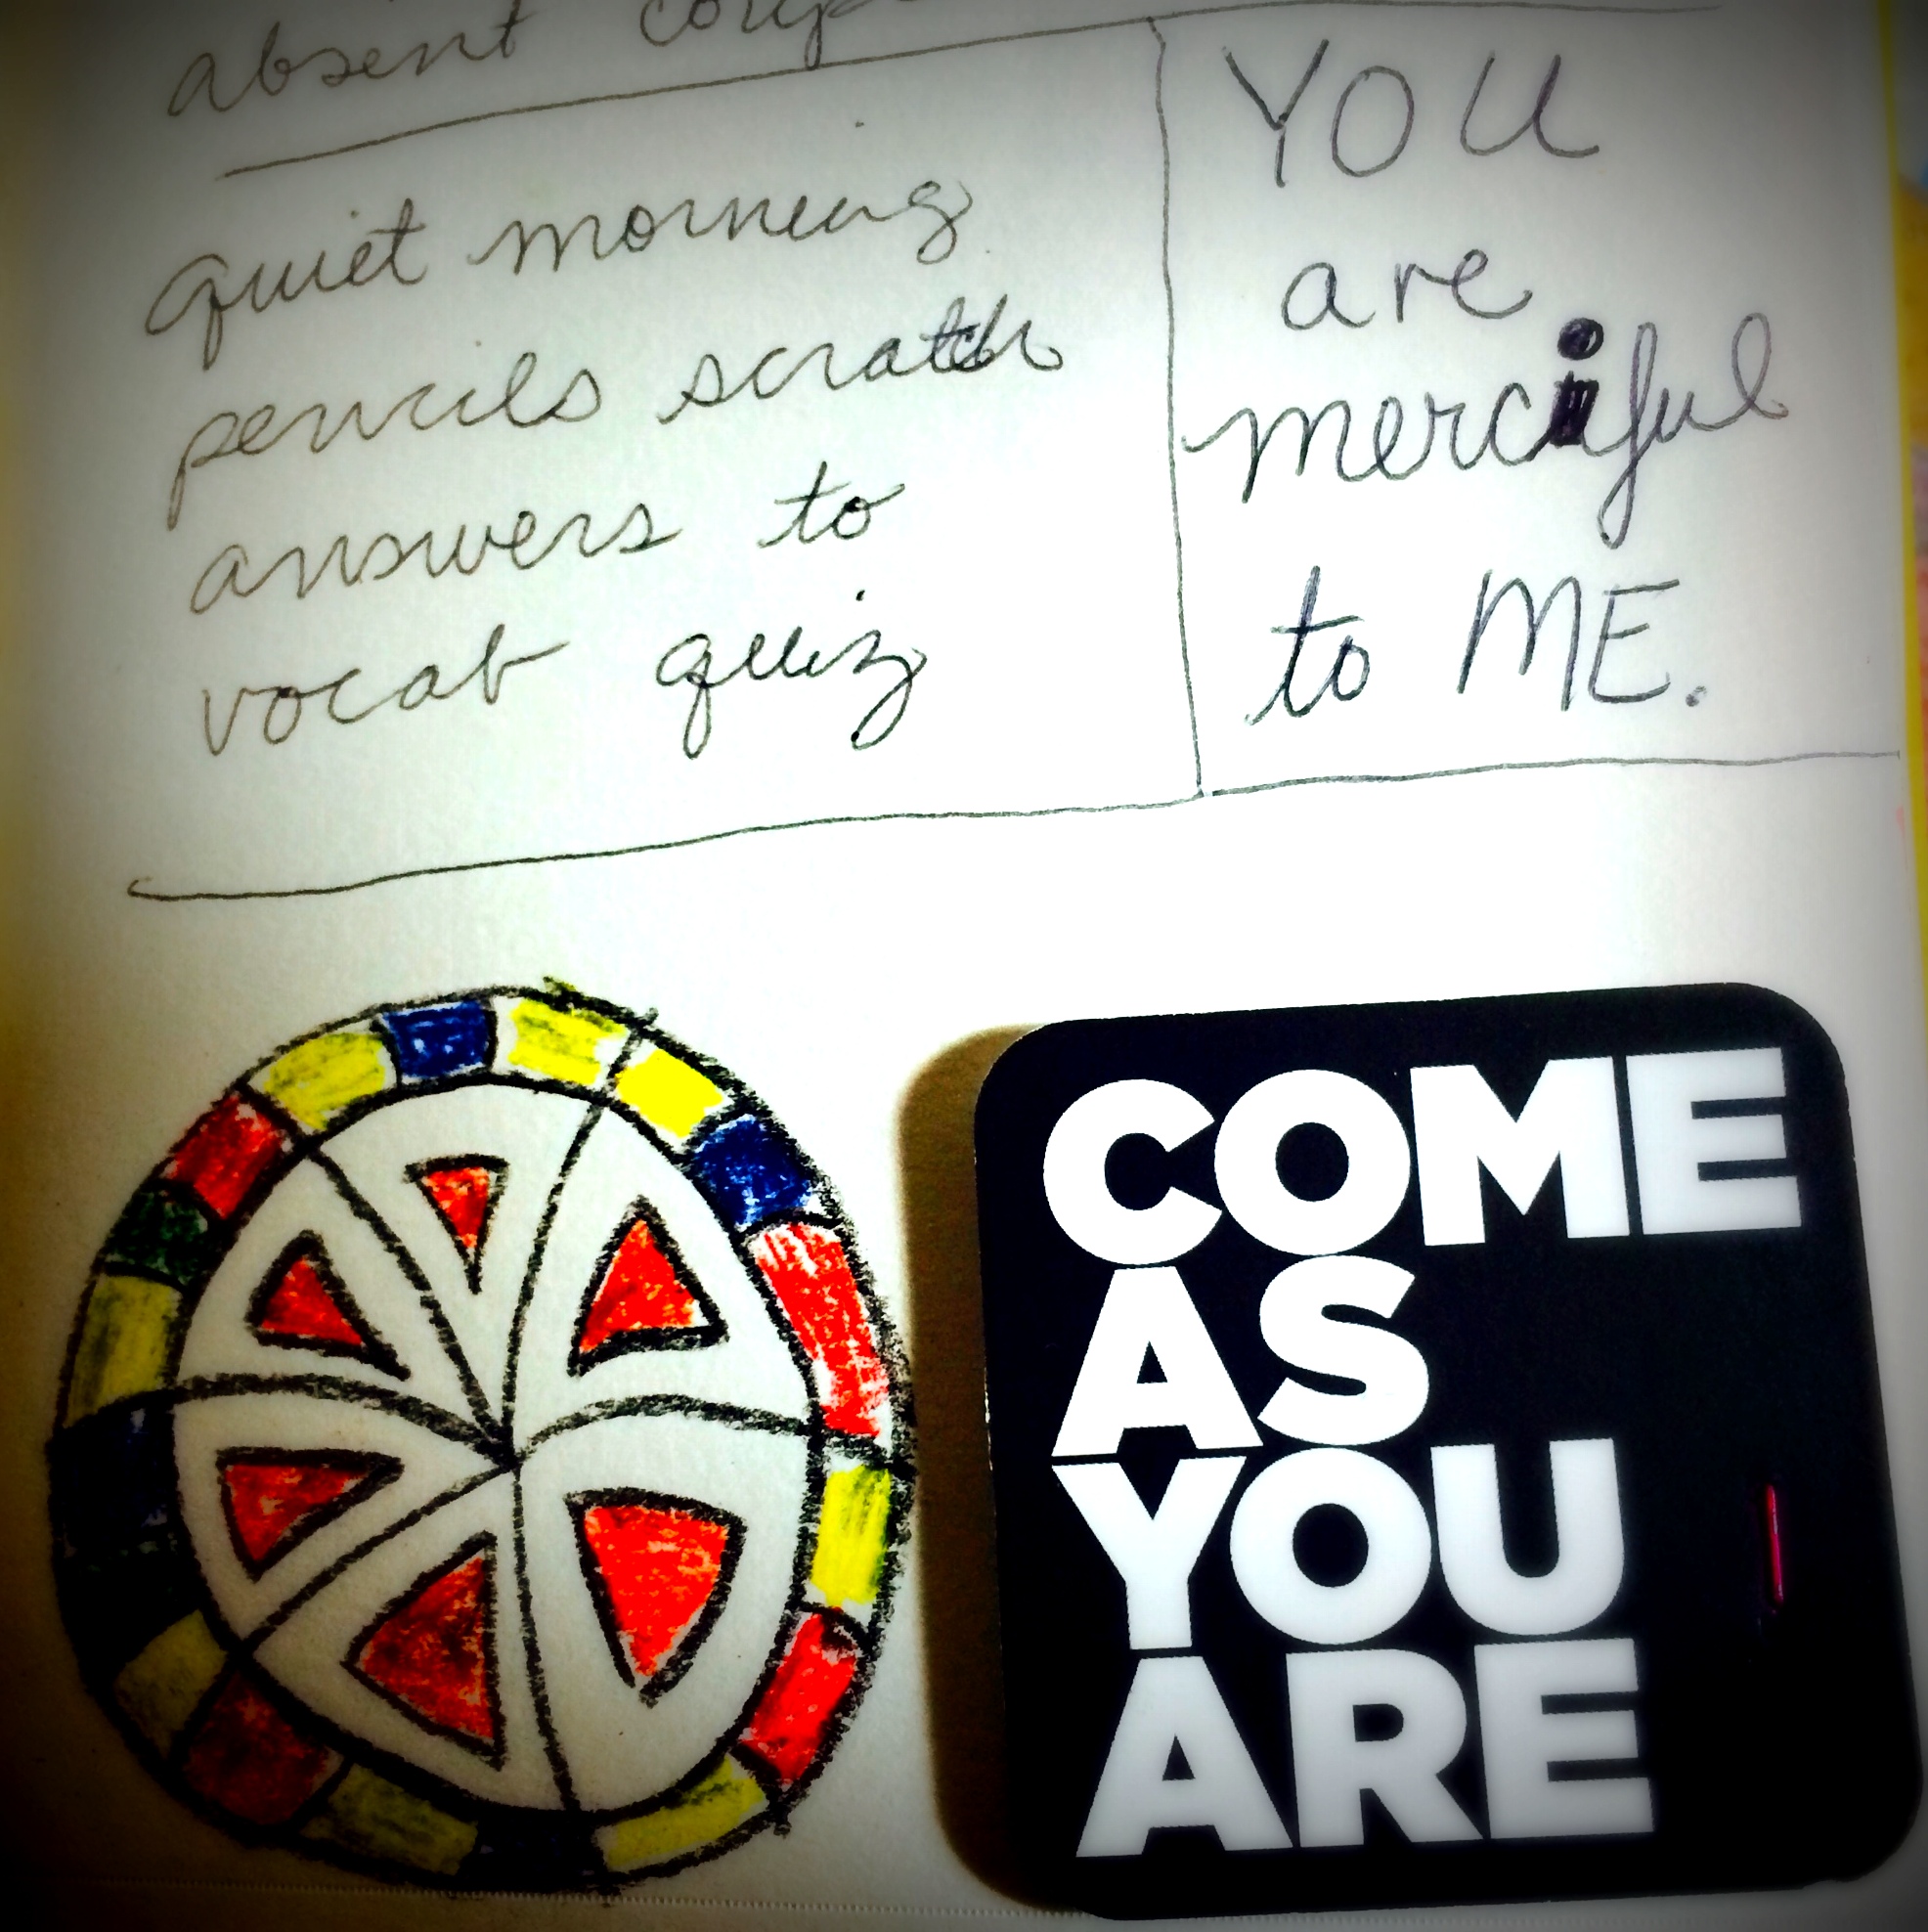 absent
quiet morning
pencils scratch
answers to
vocab quiz
YOU
are
merciful
to ME.
COME
AS
YOU
ARE